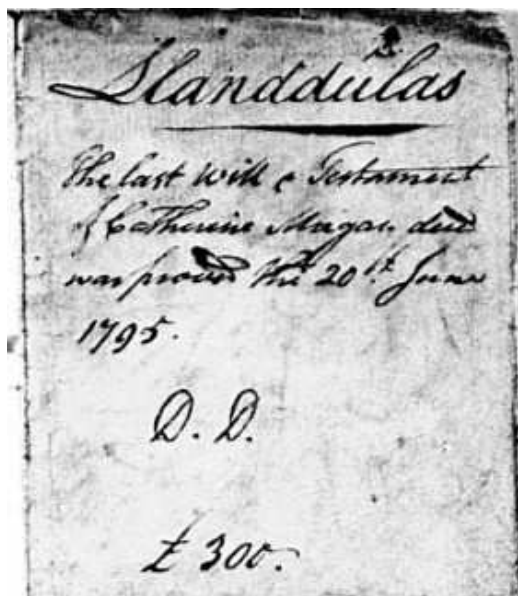 Llanddulas
The last Will & Testament
of Catherine decd
was proved the 20th. June
1795.
D. D.
£ 300.